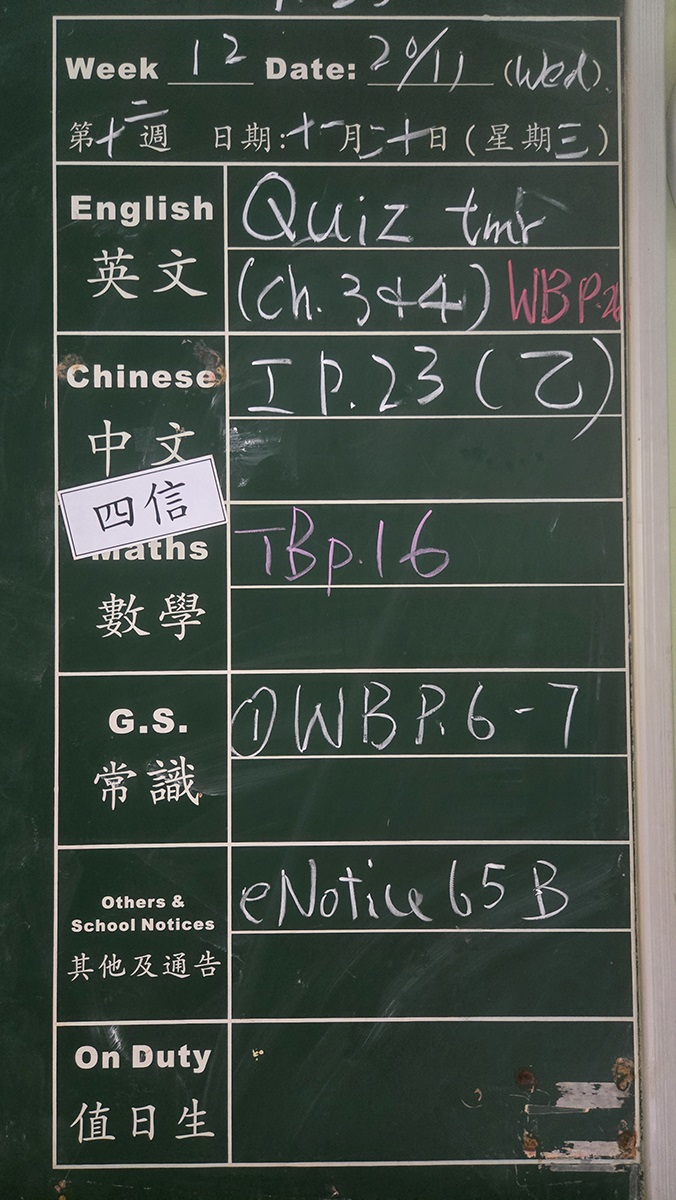 Week 12 Date: 20/11 (Wed).
第十二週 日期:十一月二十日(星期三)
English Quiz tmr
英文 (Ch. 3 & 4) WB P.
Chinese I P.23 (乙)
中文
四信
Maths TB p.16
數學
G.S. ① WB P.6-7
常識
Others & eNotice 65B
School Notices
其他及通告
On Duty
值日生